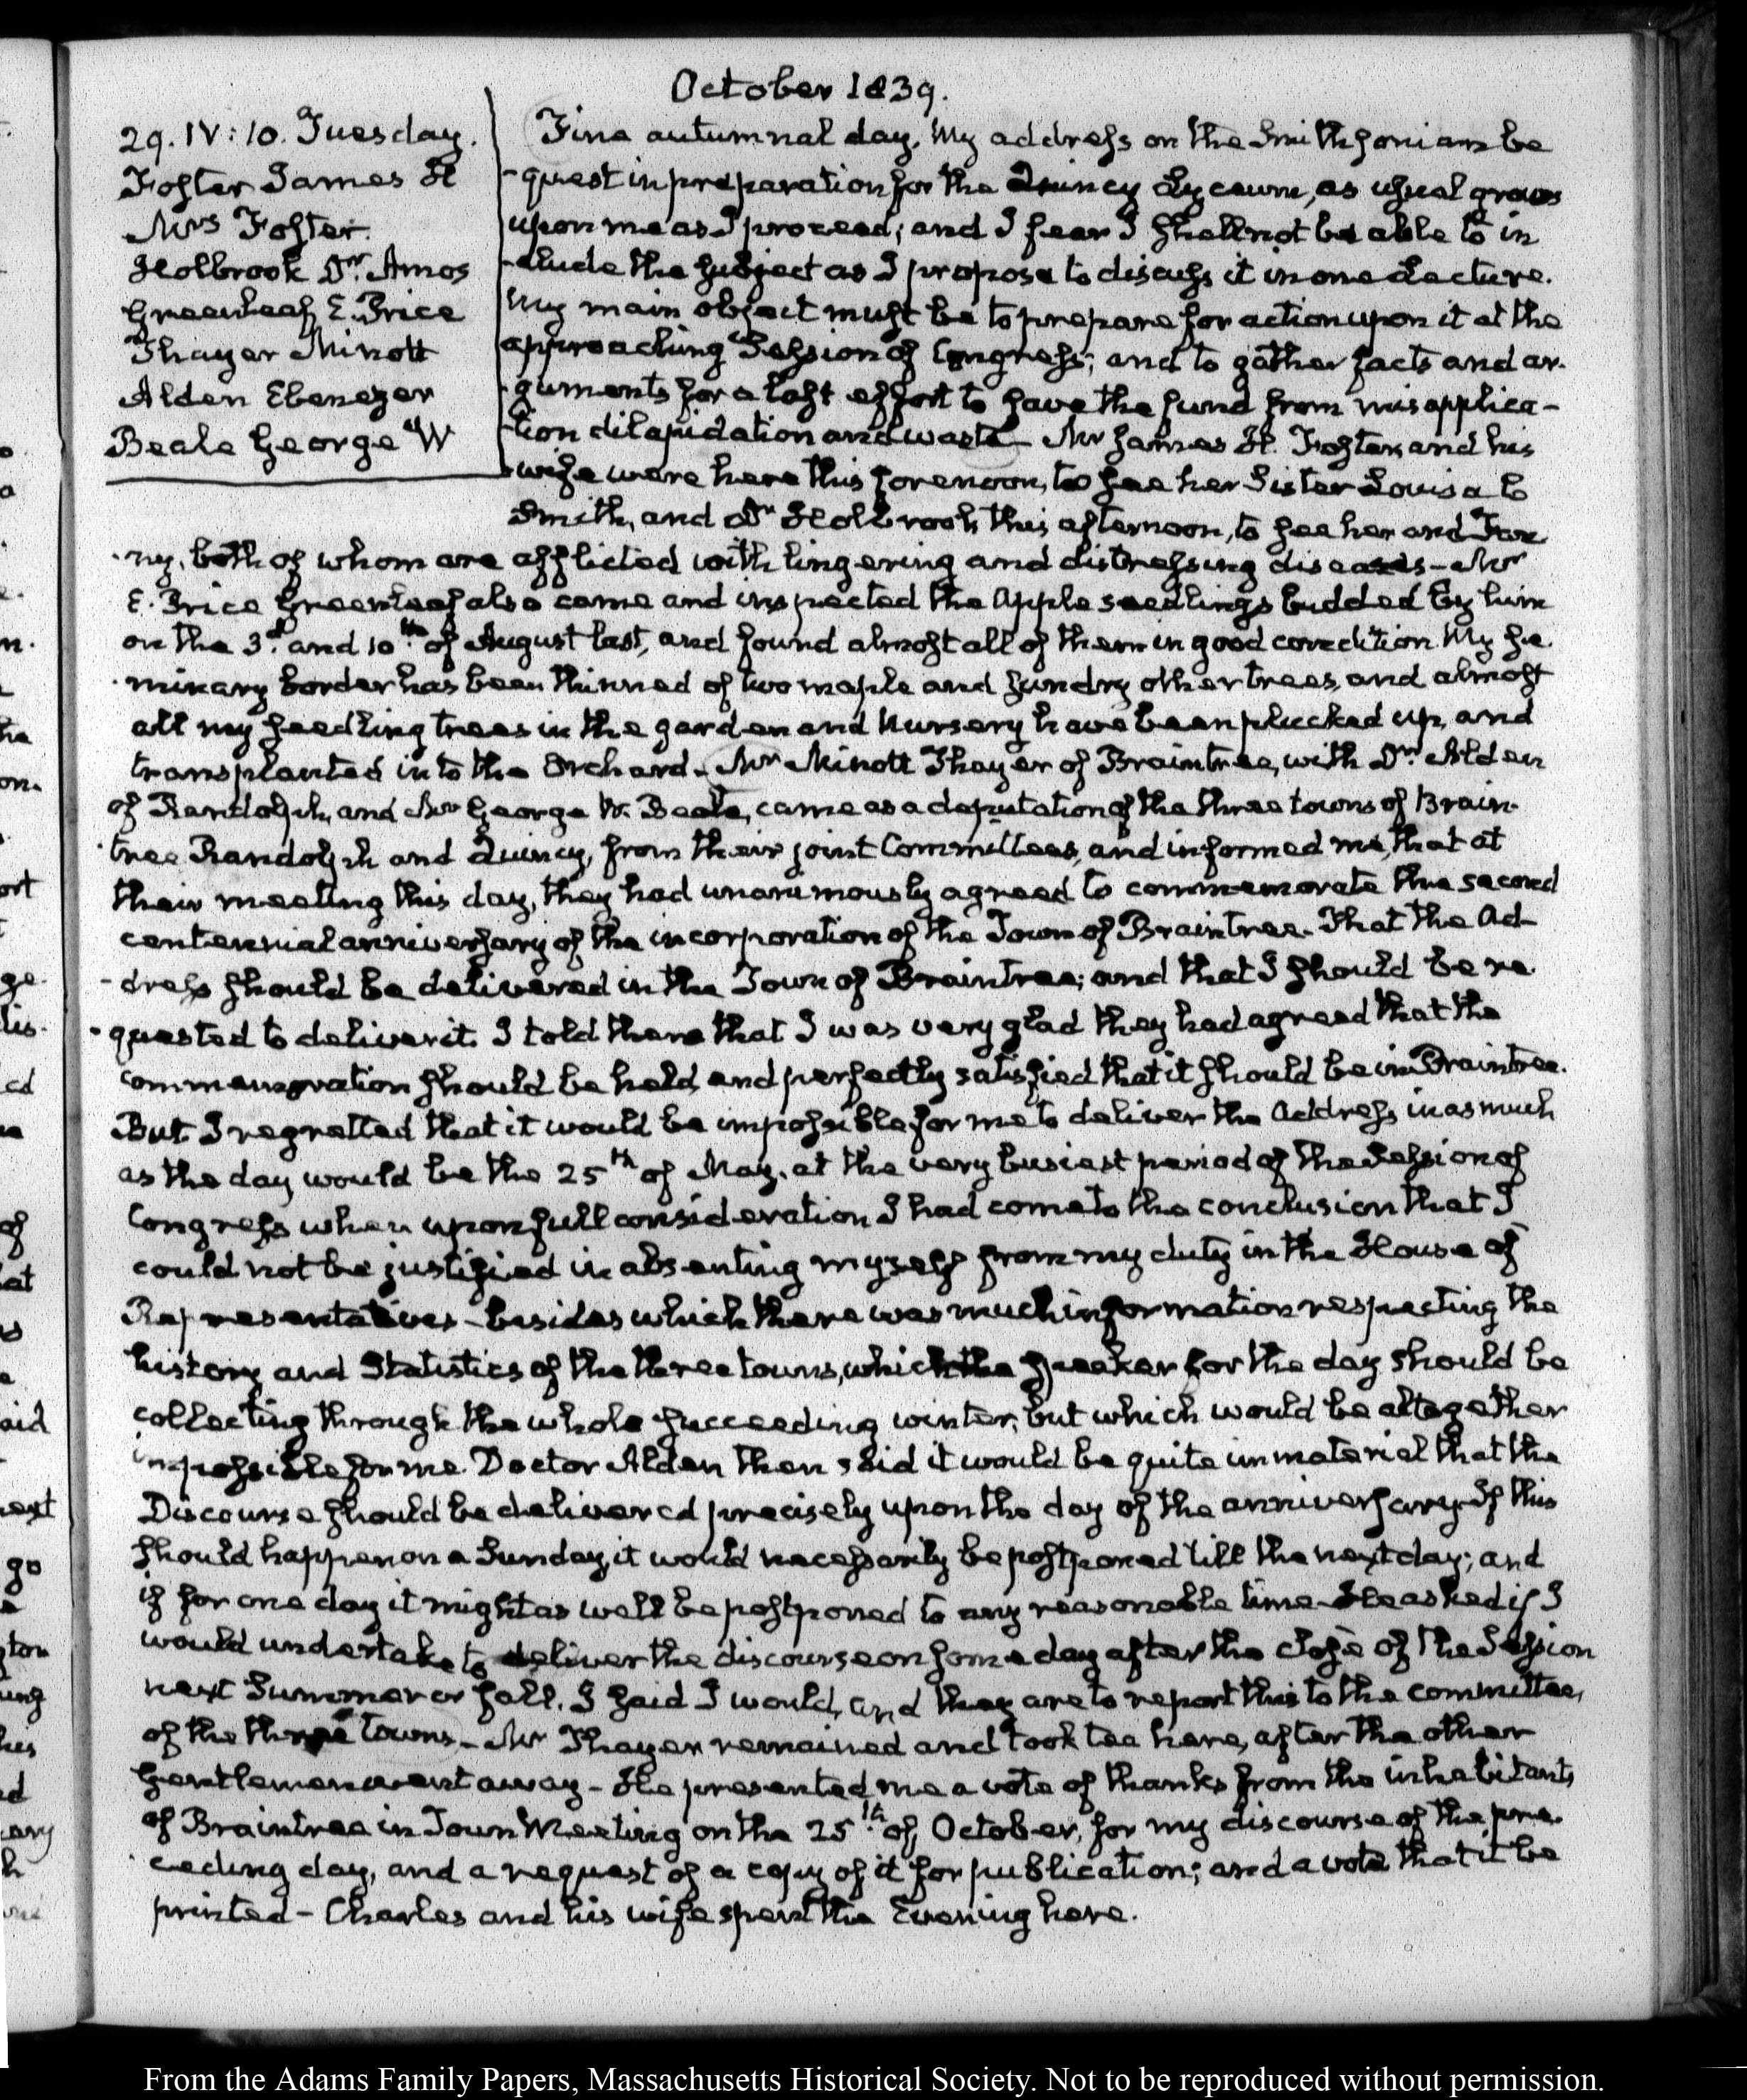 October 1839.
29. IV:10. Tuesday.
Foster James H
Mrs Foster.
Holbrook Dr. Amos
Greenleaf E. Price
Thayer Minott
Alden Ebenezer
Beale George W
Fine autumnal day. My address on the Smithsonian be
-quest in preparation for the Quincy Lyceum, as usual grows
upon me as I proceed; and I fear I shall not be able to in
-clude the subject as I propose to discuss it in one Lecture.
My main object must be to prepare for action upon it at the
approaching Session of Congress; and to gather facts and ar-
-guments for a last effort to save the fund from misapplica-
-tion dilapidation and waste- Mr James H. Foster and his
wife were here this forenoon, to see her Sister Louisa C
Smith, and Dr Holbrook this afternoon, to see her and Fan
-ny, both of whom are afflicted with lingering and distressing diseases- Mr
E. Price Greenleaf also came and inspected the Apple seedlings budded by him
on the 3d. and 10th. of August last, and found almost all of them in good condition. My se-
-minary border has been thinned of two maple and sundry other trees, and almost
all my seedling trees in the garden and Nursery have been plucked up, and
transplanted into the Orchard- Mr Minott Thayer of Braintree, with Dr. Alden
of Randolph, and Mr George W. Beale, came as a deputation of the three towns of Brain-
-tree Randolph and Quincy, from their joint Committees, and informed me, that at
their meeting this day, they had unanimously agreed to commemorate the second
centennial anniversary of the incorporation of the Town of Braintree- That the Ad-
-dress should be delivered in the Town of Braintree; and that I should be re-
-quested to deliver it. I told them that I was very glad they had agreed that the
commemoration should be held, and perfectly satisfied that it should be in Braintree.
But I regretted that it would be impossible for me to deliver the Address in as much
as the day would be the 25th of May, at the very busiest period of the Session of
Congress when upon full consideration I had come to the conclusion that I
could not be justified in absenting myself from my duty in the House of
Representatives- besides which there was much information respecting the
history and Statistics of the three towns, which the speaker for the day should be
collecting through the whole succeeding winter, but which would be altogether
impossible for me. Doctor Alden then said it would be quite immaterial that the
Discourse should be delivered precisely upon the day of the anniversary- If this
should happen on a Sunday, it would necessarily be postponed till the next day; and
if for one day it might as well be postponed to any reasonable time- He asked if I
would undertake to deliver the discourse on some day after the close of the Session
next Summer or fall. I said I would, and they are to report this to the committee,
of the three towns- Mr Thayer remained and took tea here, after the other
Gentlemen went away- He presented me a vote of thanks from the inhabitants
of Braintree in Town Meeting on the 25th. of October, for my discourse of the pre-
-ceding day, and a request of a copy of it for publication; and a vote that it be
printed- Charles and his wife spent the Evening here.
From the Adams Family Papers, Massachusetts Historical Society. Not to be reproduced without permission.